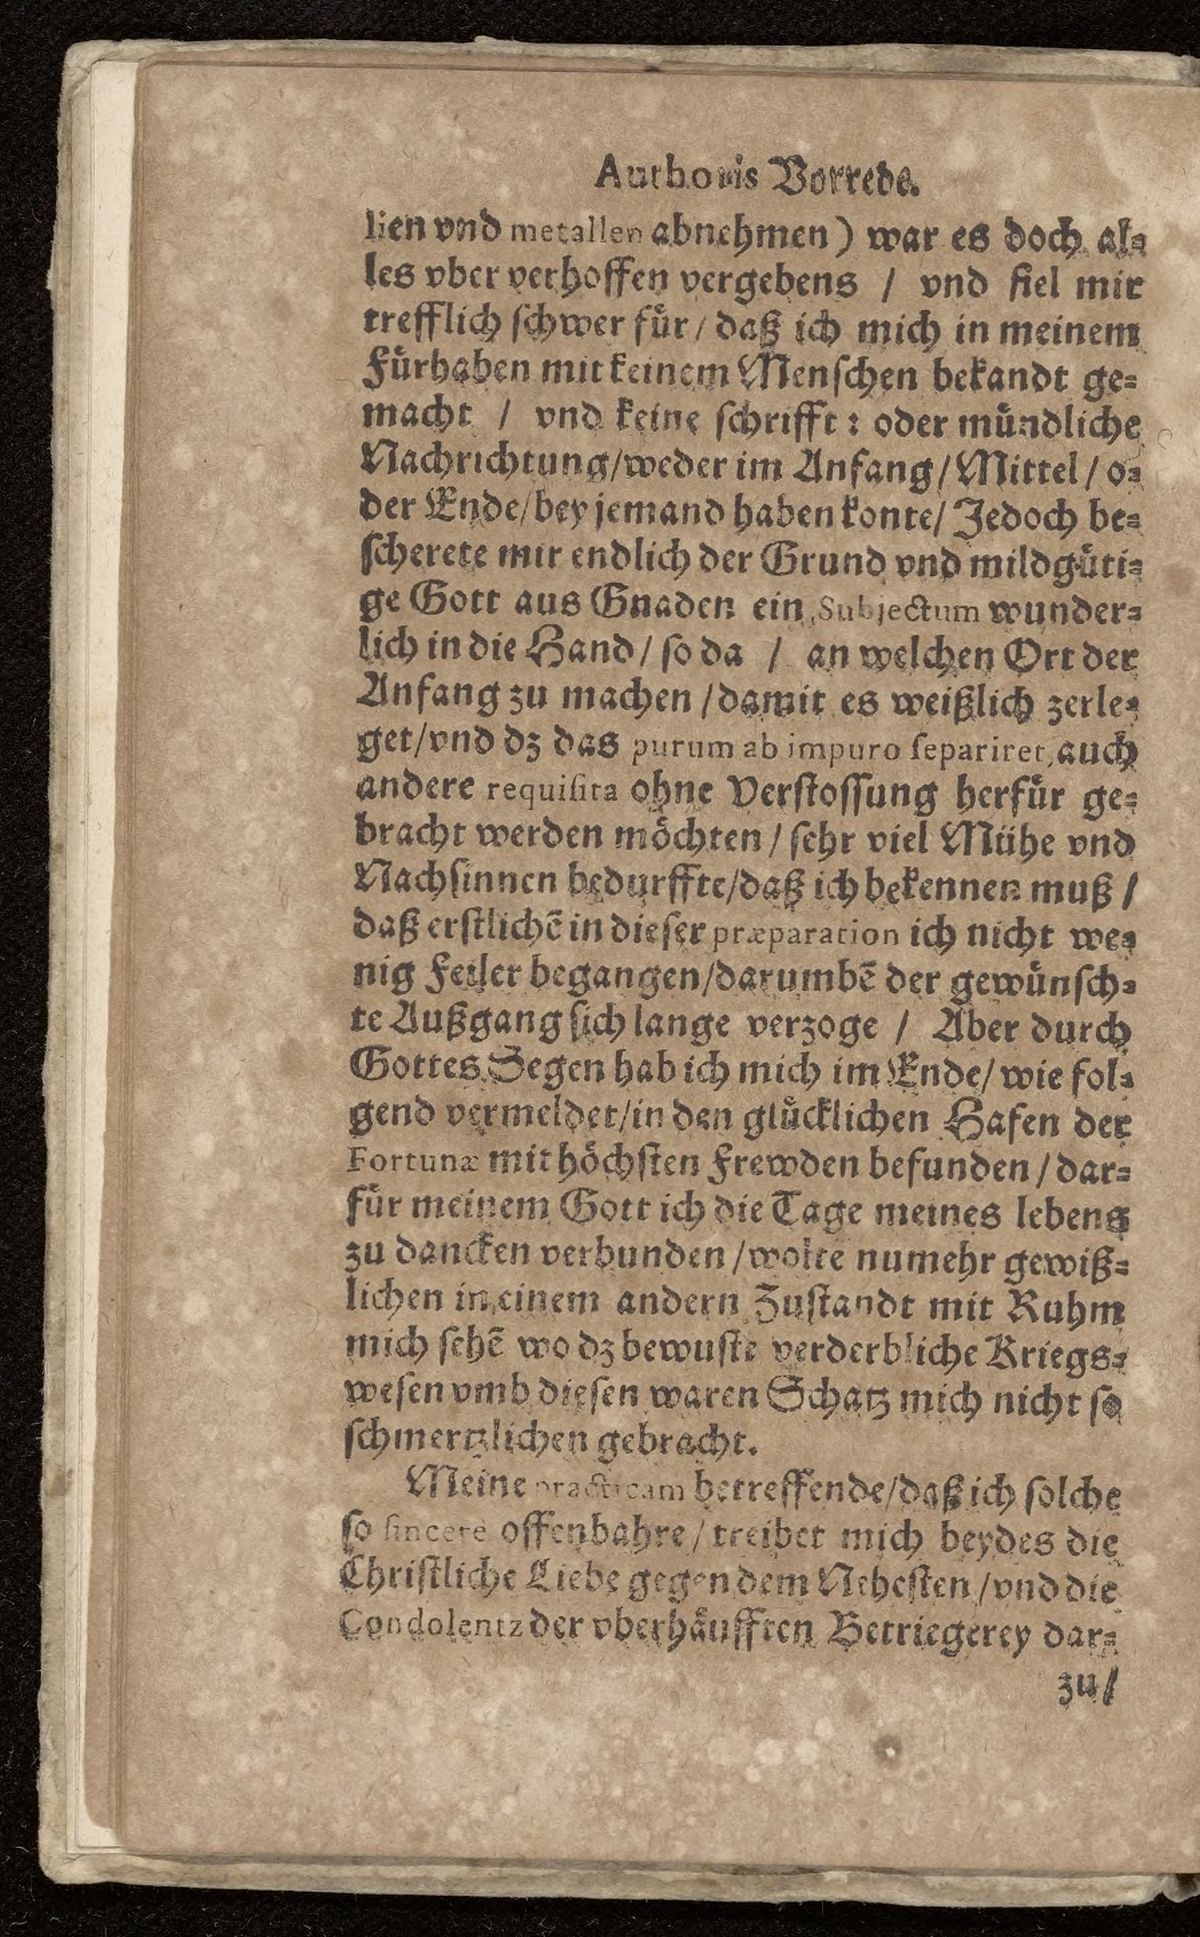 Authoris Vorrede.
lien vnd metallen abnehmen) war es doch al⸗
les vber verhoffen vergebens / vnd fiel mir
trefflich schwer fuͤr / daß ich mich in meinem
Fuͤrhaben mit keinem Menschen bekandt ge⸗
macht / vnd keine schrifft: oder muͤndliche
Nachrichtung/weder im Anfang/Mittel / o⸗
der Ende/bey jemand haben konte/ Jedoch be⸗
scherete mir endlich der Grund vnd mildguͤti⸗
ge Gott aus Gnaden ein Subjectum wunder⸗
lich in die Hand/ so da / an welchen Ort der
Anfang zu machen /damit es weißlich zerle⸗
get/vnd dz das purum ab impuro separiret, auch
andere requisita ohne Verstossung herfuͤr ge⸗
bracht werden moͤchten / sehr viel Mühe vnd
Nachsinnen bedurffte/daß ich bekennen muß /
daß erstlichē in dieser præparation ich nicht we⸗
nig Feiler begangen/darumbē der gewuͤnsch⸗
te Außgang sich lange verzoge / Aber durch
Gottes Segen hab ich mich im Ende/ wie fol⸗
gend vermeldet/in den gluͤcklichen Hafen der
Fortunæ mit hoͤchsten Frewden befunden / dar⸗
fuͤr meinem Gott ich die Tage meines lebens
zu dancken verbunden /wolte numehr gewiß⸗
lichen in einem andern Zustandt mit Ruhm
mich sehē wo dz bewuste verderbliche Kriegs⸗
wesen vmb diesen waren Schatz mich nicht so
schmertzlichen gebracht.
Meine practicam betreffende/daß ich solche
so sincere offenbahre / treibet mich beydes die
Christliche Liebe gegen dem Nehesten /vnd die
Condolentz der vberhaͤufften Betriegerey dar⸗
zu/